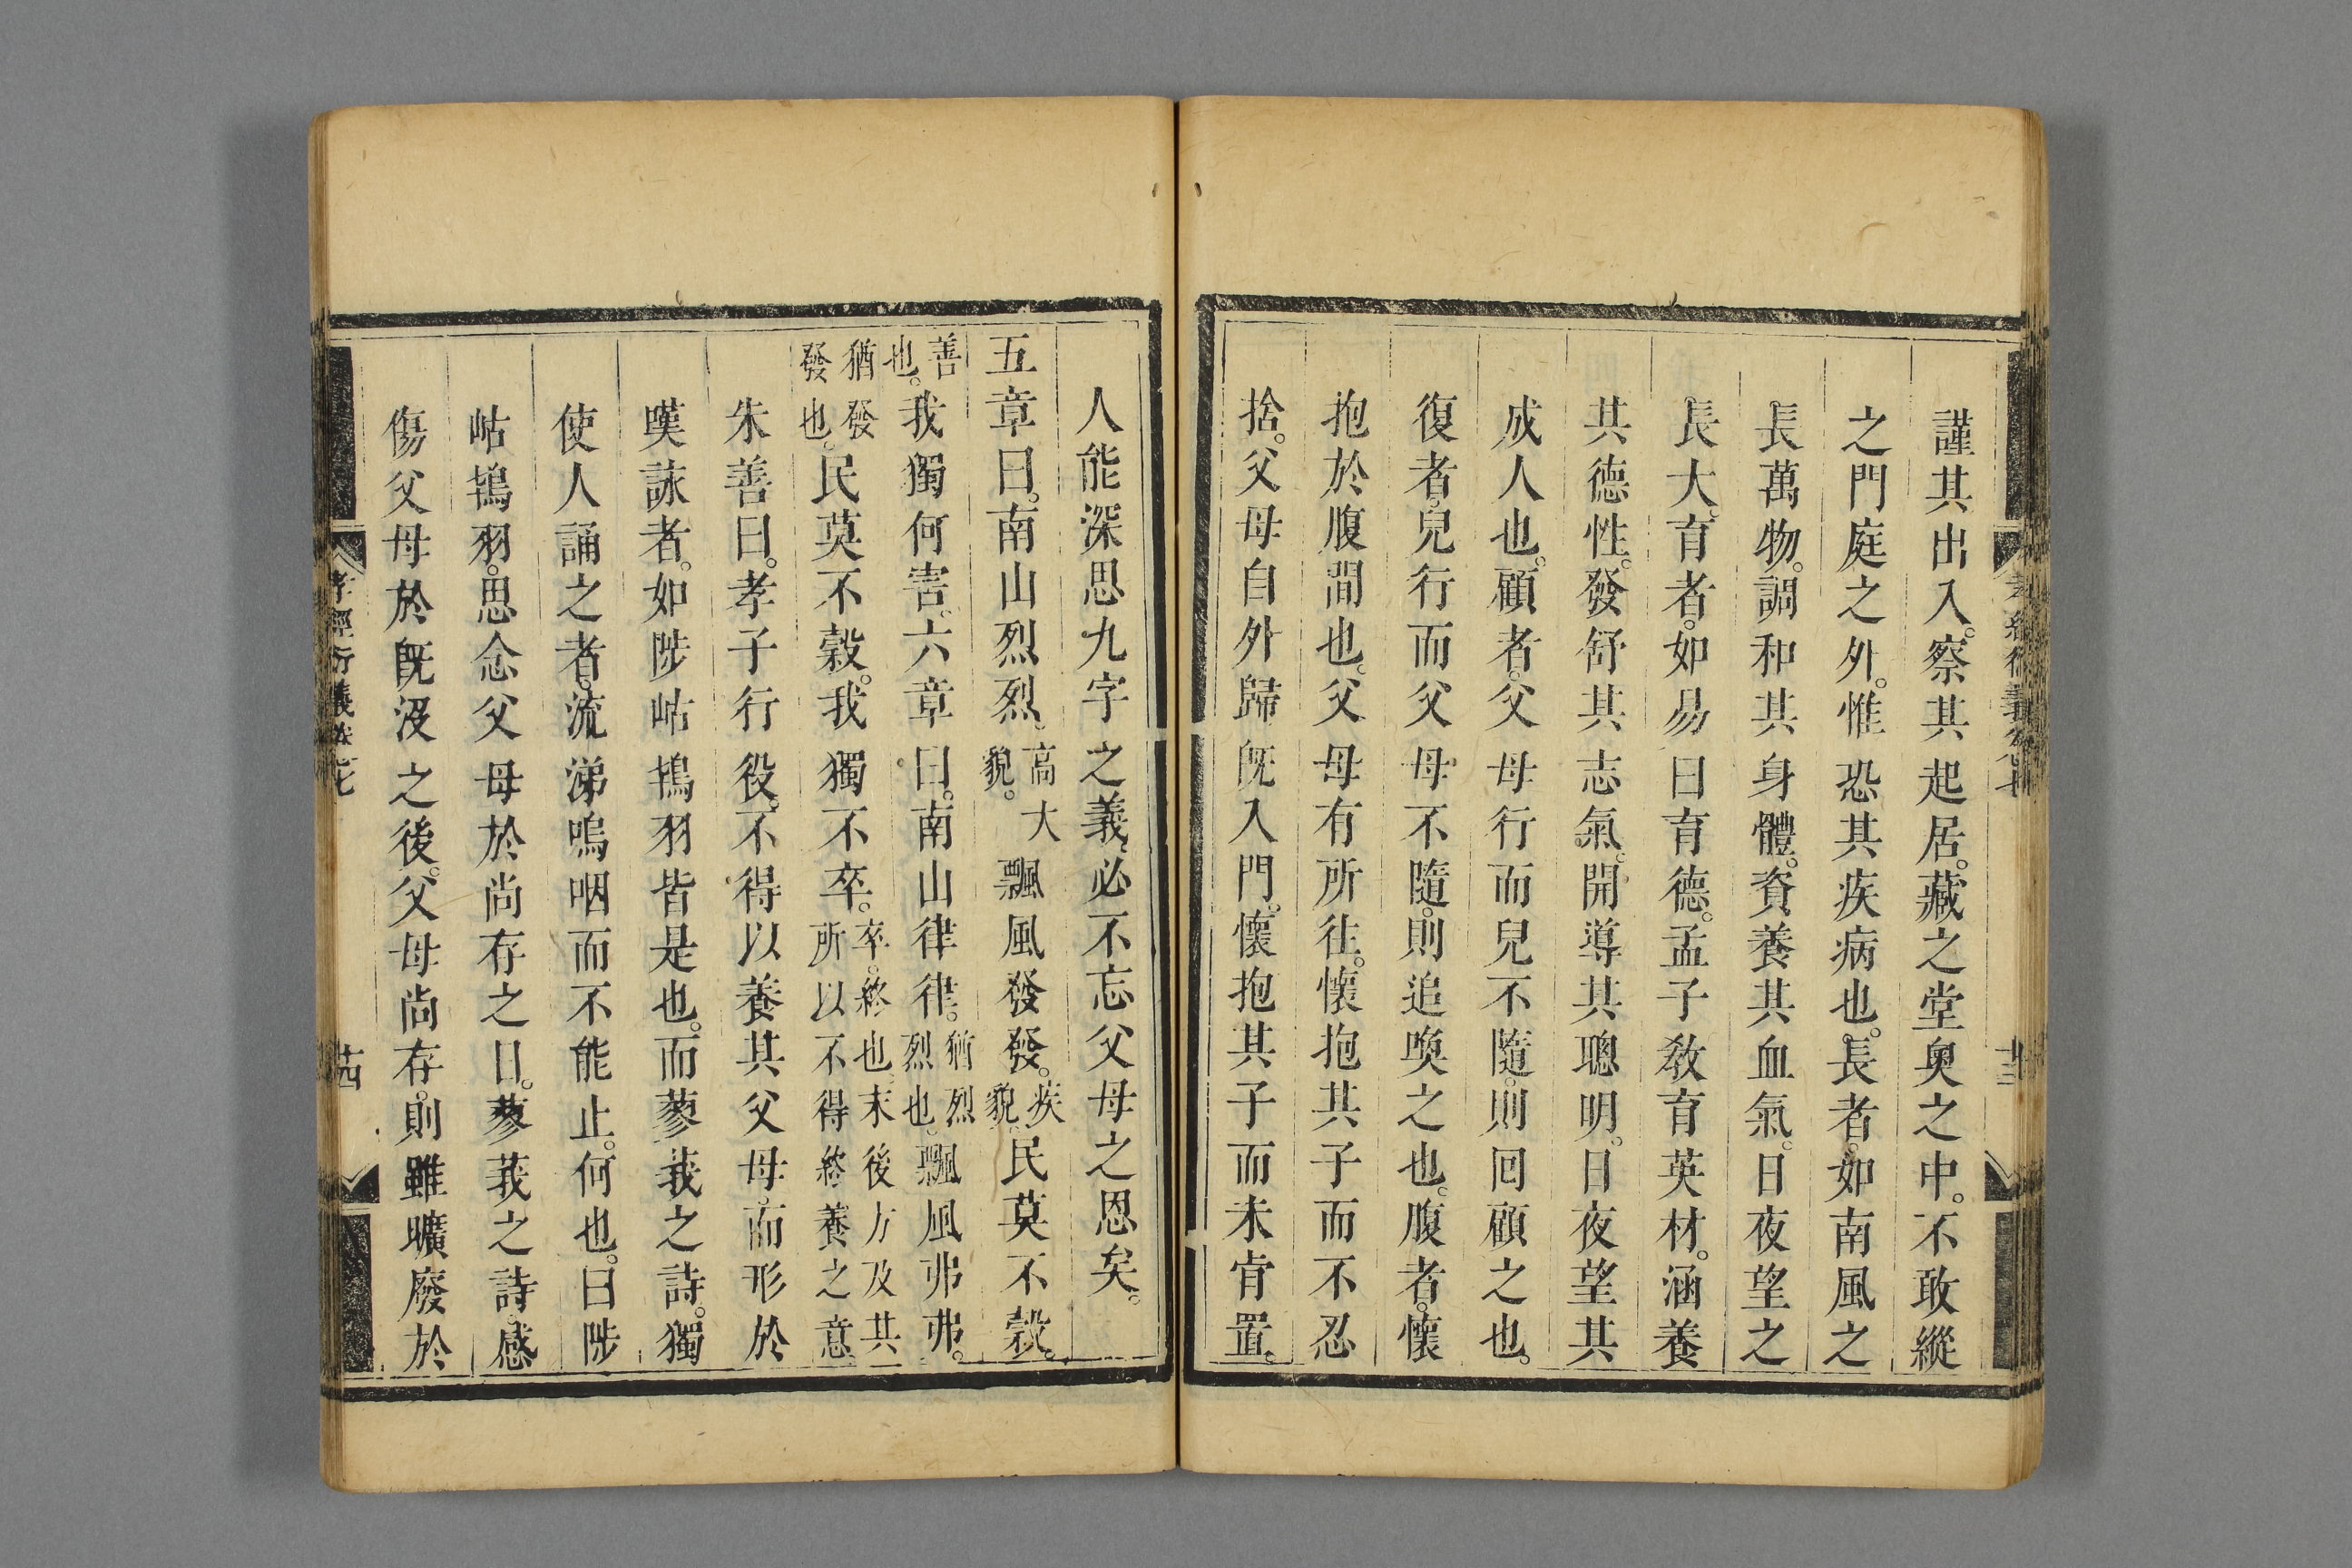 謹其出入。察其起居。藏之堂奥之中。不敢縱
之門庭之外。惟恐其疾病也。長者。如南風之
長萬物。調和其身體。資養其血氣。日夜望之
長大。育者。如易曰育德。孟子敎育英材。涵養
其德性。發舒其志氣。開導其聰明。日夜望其
成人也。顧者。父母行而兒不隨。則回顧之也。
復者。兒行而父母不隨。則追喚之也。腹者。懷
抱於腹間也。父母有所往。懷抱其子而不忍
捨。父母自外歸旣入門。懷抱其子而未肯置。
人能深思九字之義。必不忘父母之恩矣。
五章曰。南山烈烈。高大貌。飄風發發。疾貌。民莫不穀。
善也。我獨何害。六章曰。南山律律。猶烈烈也。飄風弗弗。
猶發發也。民莫不穀。我獨不卒。卒。終也。末後方及其所以不得終養之意
朱善曰。孝子行役。不得以養其父母。而形於
嘆詠者。如陟岵鴇羽皆是也。而蓼莪之詩。獨
使人誦之者。流涕嗚咽而不能止。何也。曰陟
岵鴇羽。思念父母於尚存之日。蓼莪之詩。感
傷父母於旣沒之後。父母尚存。則雖曠廢於
孝經衍義卷七
廿四